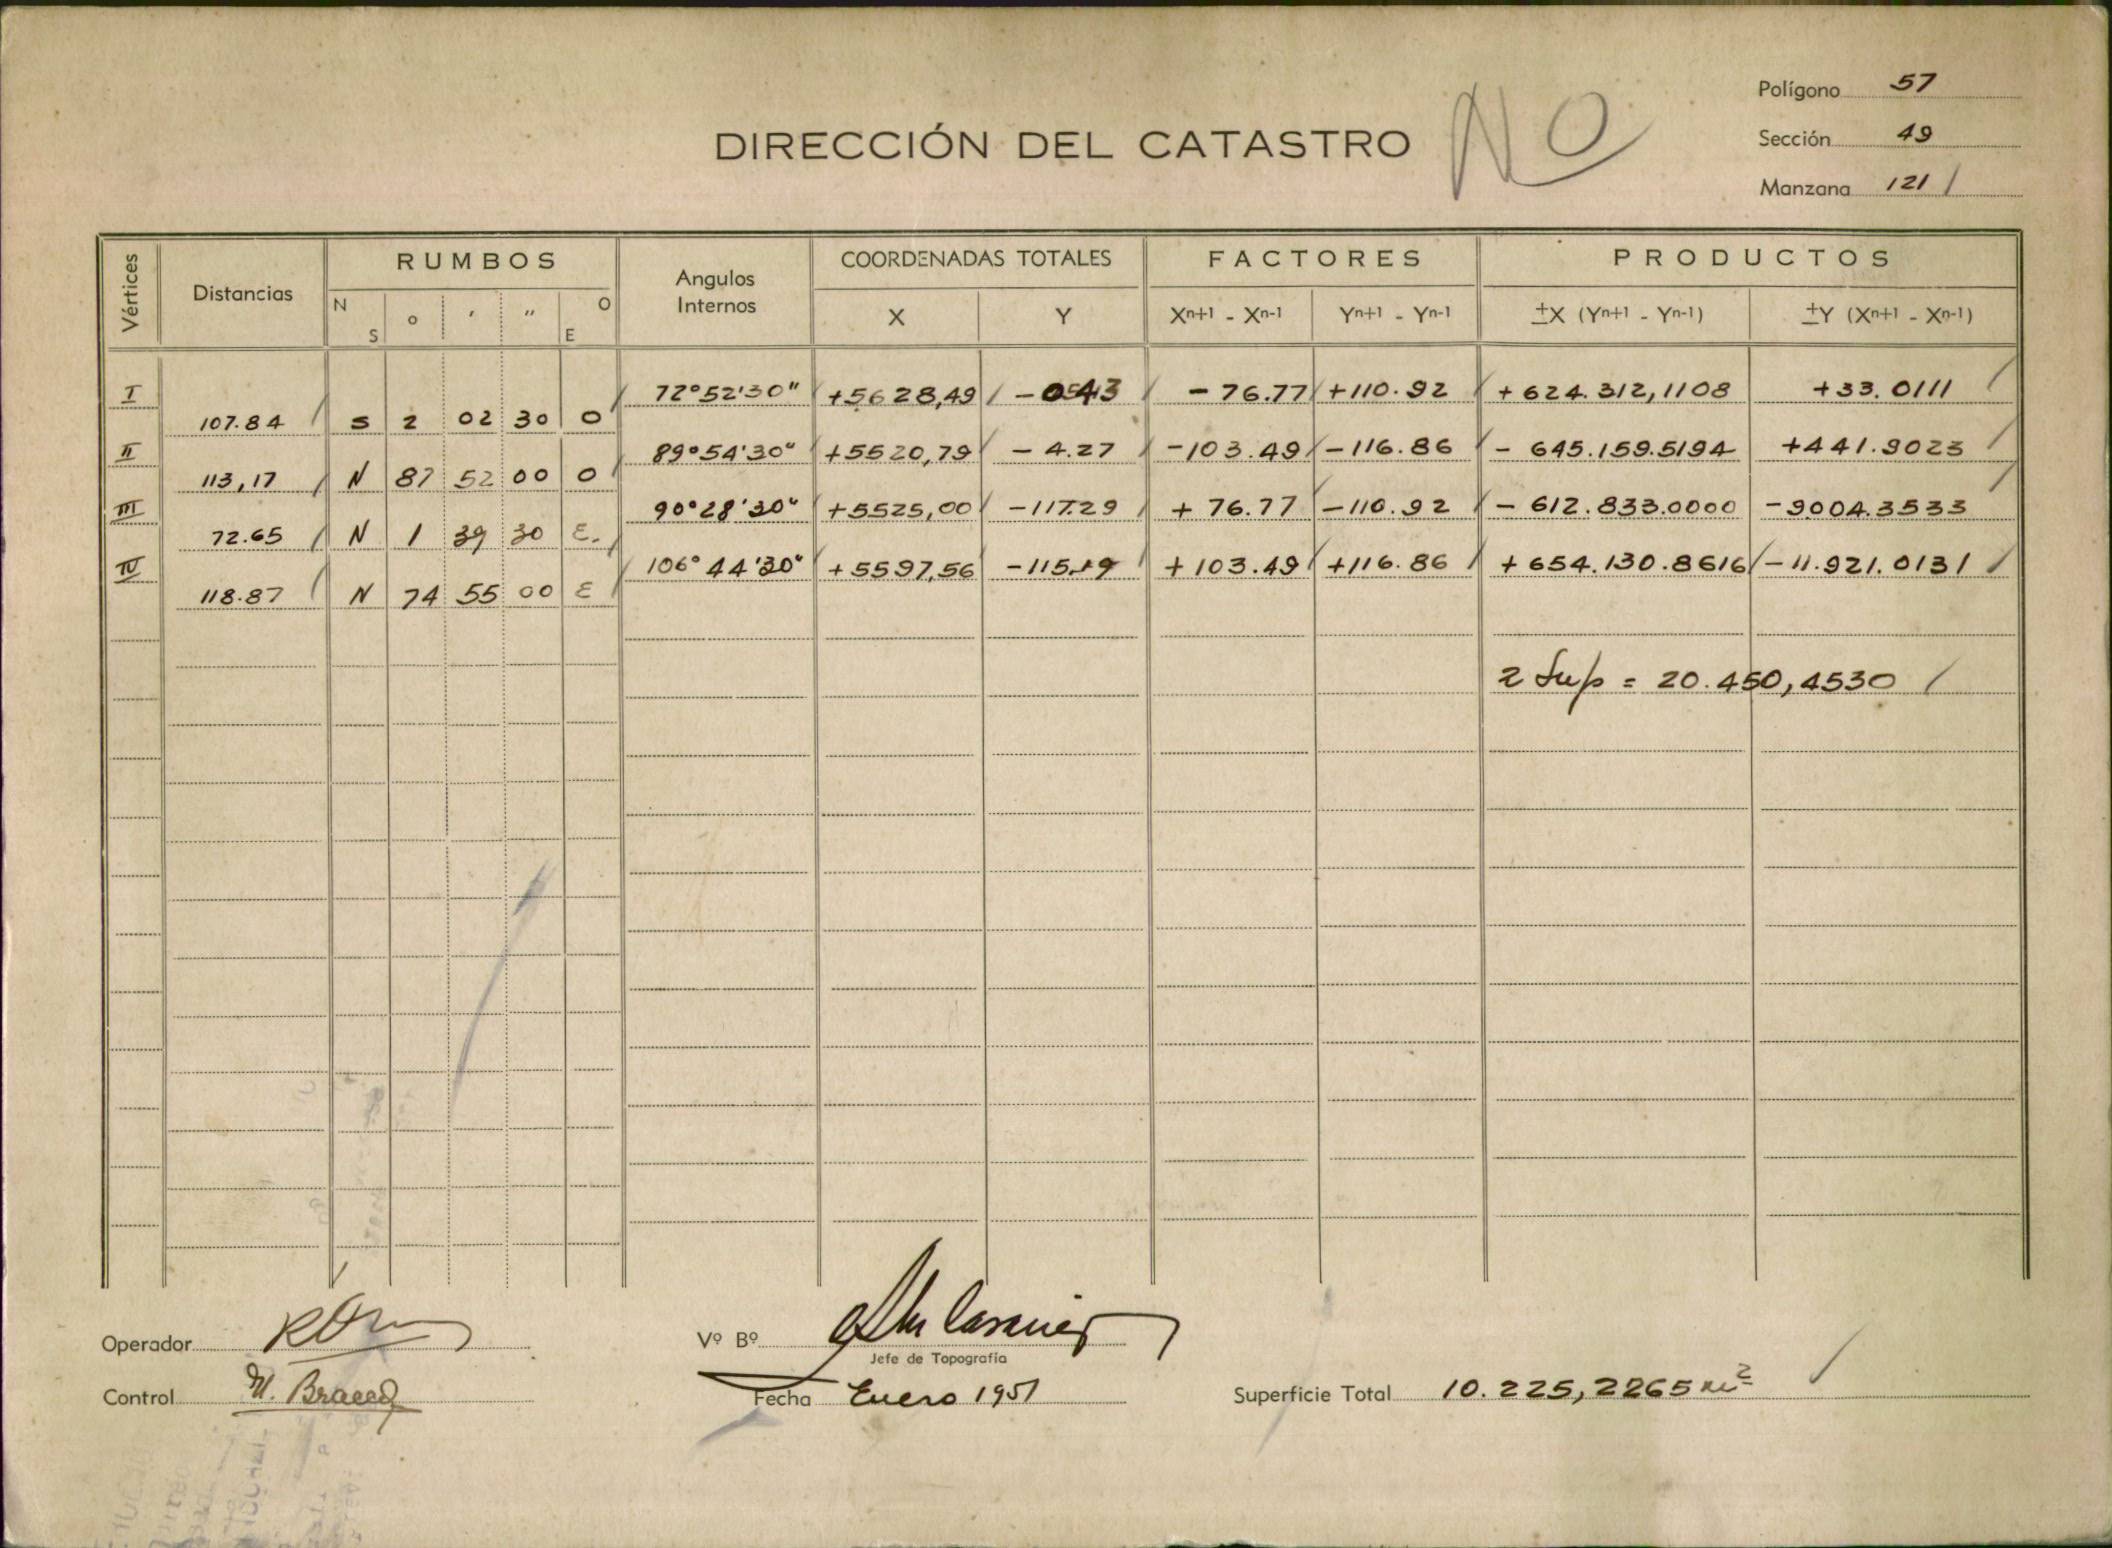 Polígono 57
DIRECCIÓN DEL CATASTRO NO
Sección 49
Manzana 121 /
Vértices Distancias RUMBOS Angulos Internos COORDENADAS TOTALES FACTORES PRODUCTOS
N S o ′ ″ O E X Y Xn+1 - Xn-1 Yn+1 - Yn-1 ±X (Yn+1 - Yn-1) ±Y (Xn+1 - Xn-1)
I 72°52'30" +5628,49 / - 0.43 / - 76.77 / +110.92 / +624.312,1108 +33.0111 /
107.84 / S 2 02 30 O /
II 89°54'30" +5520,79 / - 4.27 / -103.49 / -116.86 / - 645.159.5194 +441.9023 /
113,17 / N 87 52 00 O /
III 90°28'30" +5525,00 / -117.29 / + 76.77 / -110.92 / - 612.833.0000 -9004.3533 /
72.65 / N 1 39 30 E. /
IV 106°44'30" +5597,56 / -115.19 / +103.49 / +116.86 / +654.130.8616 / -11.921.0131 /
118.87 / N 74 55 00 E /
2 Sup = 20.450,4530 /
Operador Vº Bº
Jefe de Topografía
Control Fecha Enero 1951 Superficie Total 10.225,2265 m2 /